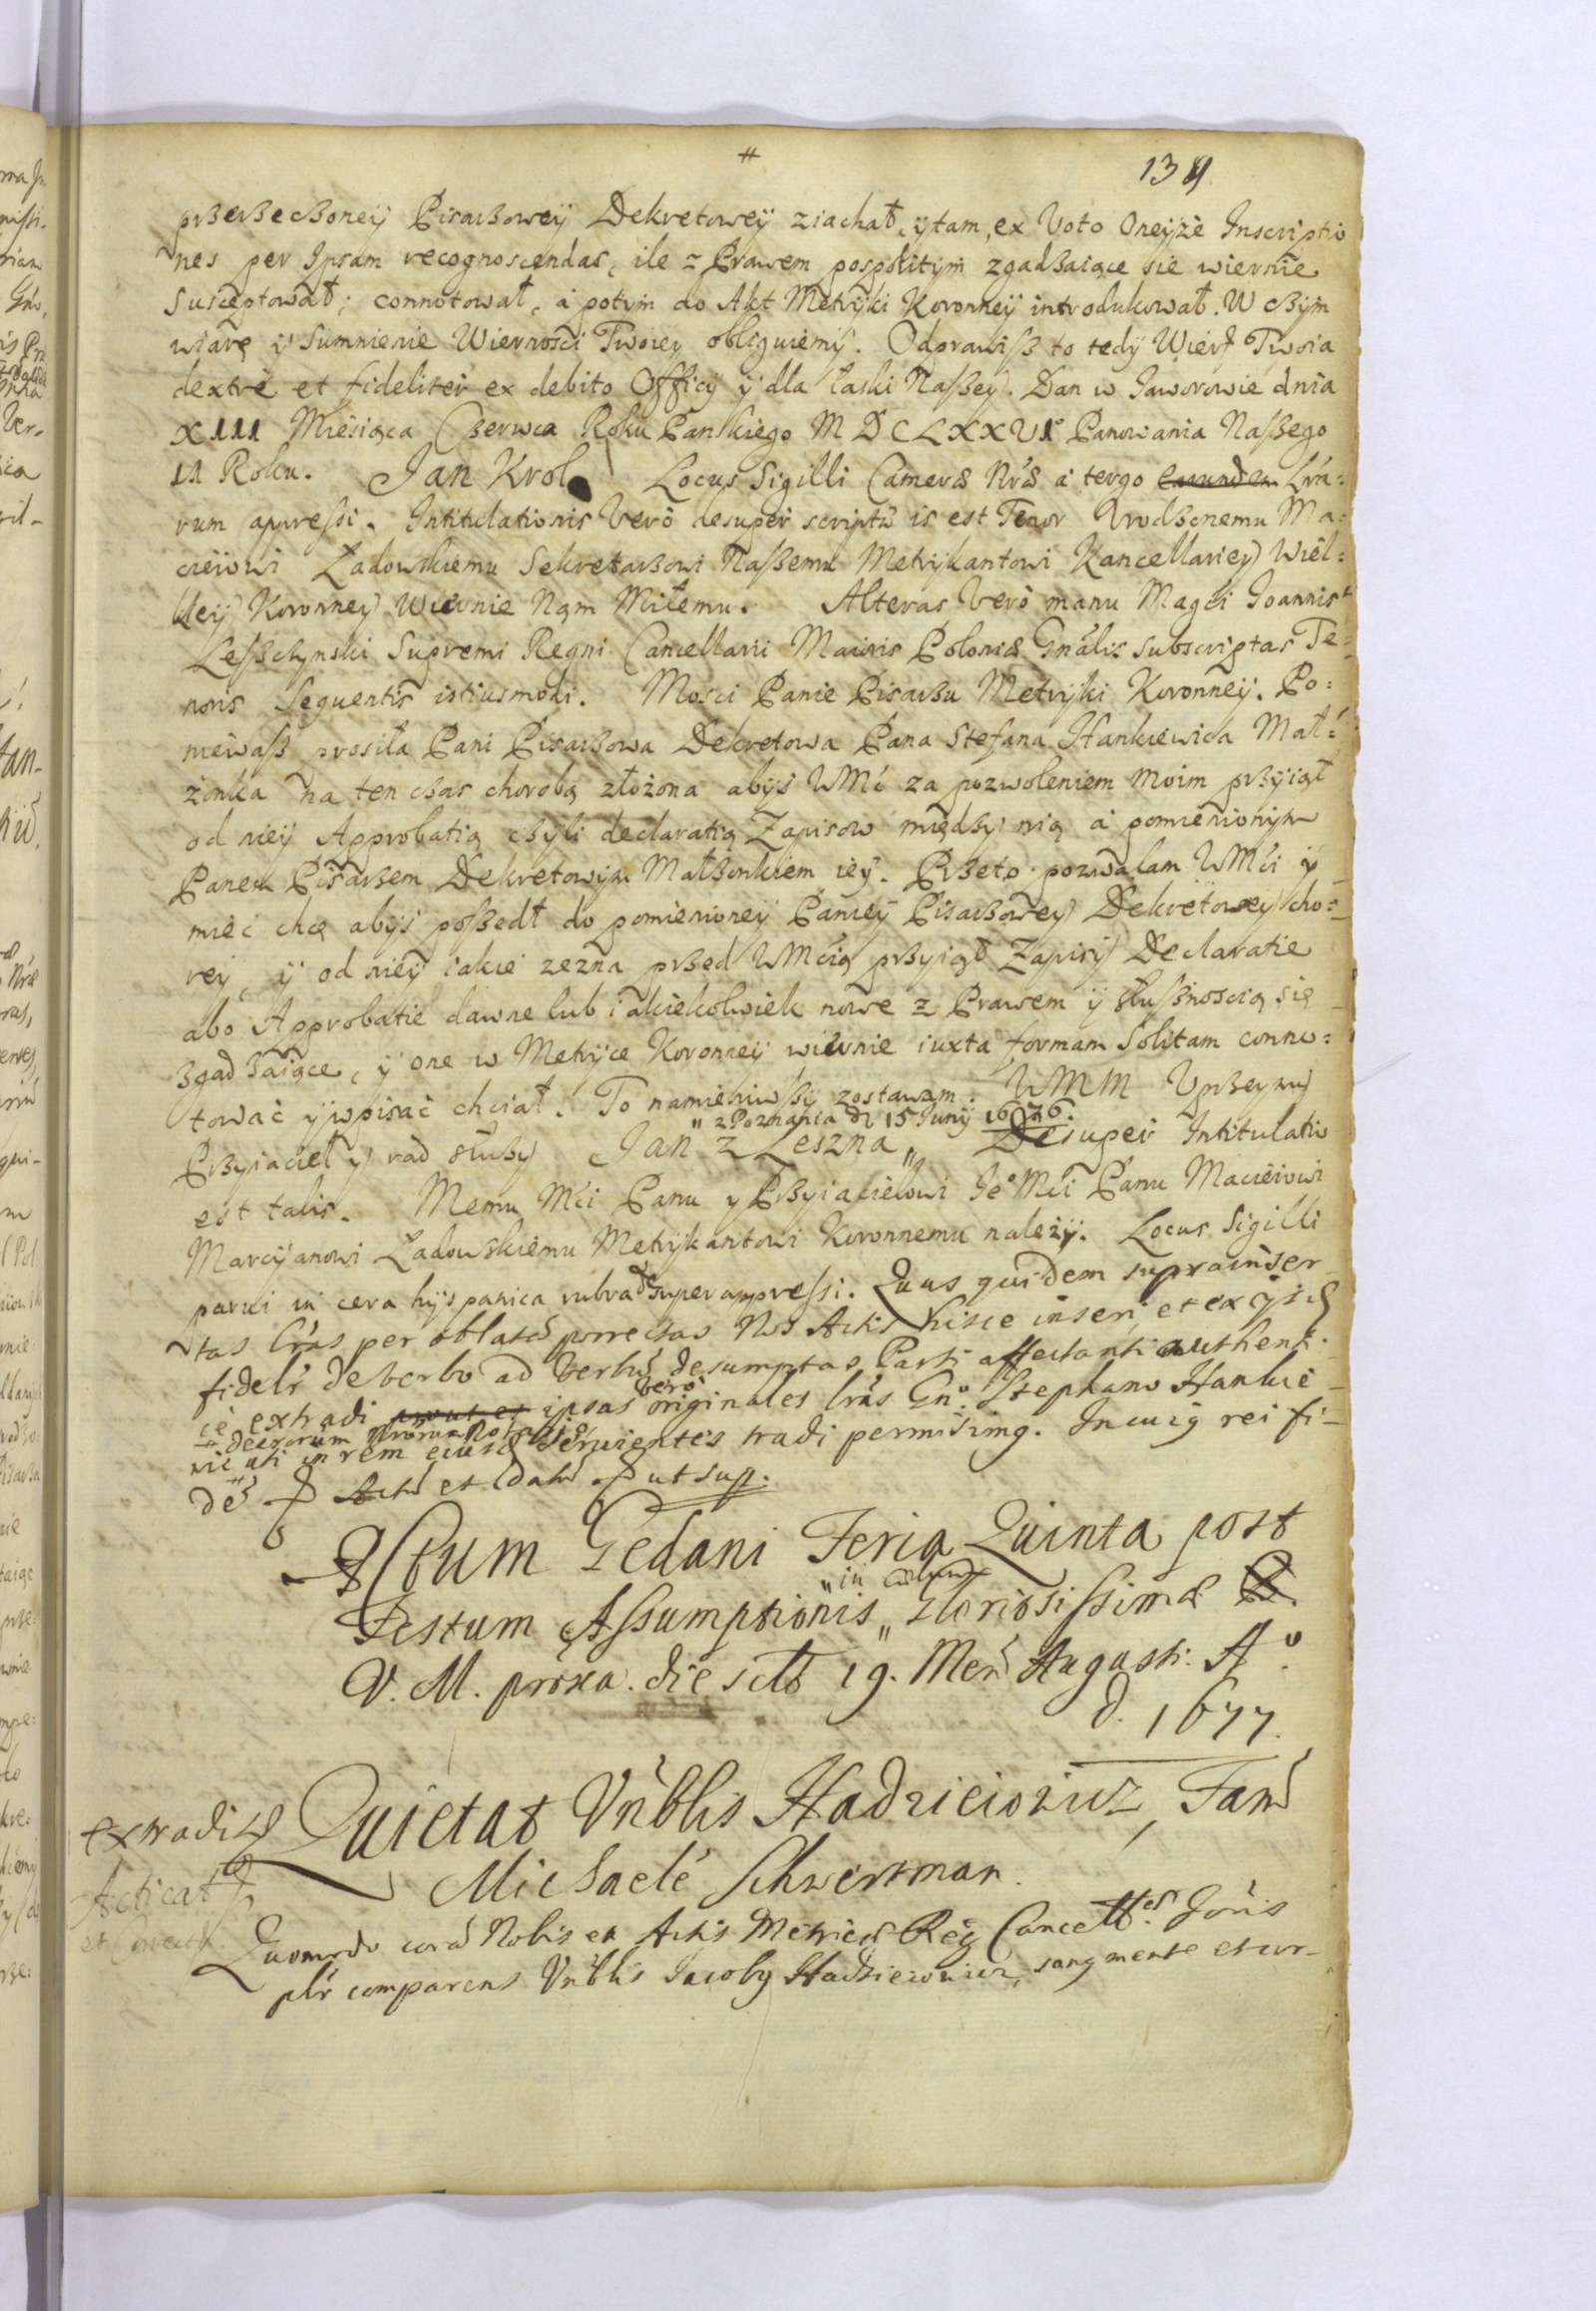 #
139
przerzeczoneÿ Pisarzoweÿ Dekretoweÿ ziachał, ÿ tam, ex Voto Oneÿże Inscriptio
nes per Ipsam recognoscendas, ile z Prawem pospolitÿm zgadzaiące sie wiernie
Susceptował; connotował, a potÿm do Akt Metrÿki Koronneÿ introdukował. W czÿm
wiarę ÿ Sumnienie Wiernosci Twoieÿ obliguiemÿ. Odprawisz to tedÿ Wier Twoia
dextrè et fideliter ex debito Officij ÿ dla łaski Naszeÿ. Dan w Jaworowie dnia
XIII Miesiąca Czerwca Roku Panskiego MDCLXXVI° Panowania Naszego
II Roku. Jan Krol. Locus Sigilli Cameræ Nræ a tergo earundem Lrá=
rum appressi. Intitulationis Verò desuper scriptæ is est Tenor Urodzonemu Ma=
cieiowi Ładowskiemu Sekretarzowi Naszemu Metrÿkantowi Kancellarieÿ Wiel=
kieÿ Koronneÿ Wiernie Nąm Miłemu. Alteras Verò manu Magci Joannis
Leszczynski Supremi Regni Cancellarii Maioris Poloniæ Gnális subscriptas Te=
noris Sequentis istiusmodi. Mosci Panie Pisarzu Metrÿki Koronneÿ. Po=
niewasz prosiła Pani Pisarzowa Dekretowa Pana Stefana Hankiewica Mał=
żonka na ten czas chorobą złożona abÿs WMć za pozwoleniem moim przÿiął
od nieÿ Approbatią czÿli declaratią Zapisow międzÿ nią a pomienionÿm
Panem Pisarzem Dekretowÿm Małzonkiem ieÿ. Przeto pozwalam WMći ÿ
mieć chcę abÿs poszedł do pomienioneÿ Panieÿ Pisarzoweÿ Dekretoweÿ cho=
reÿ, ÿ od nieÿ iakie zezna przed WMćią przÿiął Zapisÿ Declaratie
abo Approbatie dawne lub iakiekolwiek nowe z Prawem ÿ słusznoscią się
zgadzaiące, ÿ one w Metrÿce Koronneÿ wiernie iuxta formam Solitam conno=
tować ÿ wpisać chciał. To namieniwszÿ zostawam. WMM Uprzeÿmÿ
" z Poznania D 15 Junÿ 1676.
Przÿiaciel ÿ rad służÿ Jan z Leszna " Desuper Intitulatio
est talis. Memu Mći Panu y Przÿiacielowi Je° Mći Panu Macieiowi
Marcÿanowi Ładowskiemu Metrÿkantowi Koronnemu należÿ. Locus Sigilli
parui in cera hÿspanica rubra desuper appressi. Quas quidem suprainser
tas Lrás per oblatã porrectas Nos Actis hisce inseri, et ex
fidelr de verbo ad verbũ desumptas Parti affectanti authenti
cè extradi prout et ipsas verò originales lrás Gn° Stephano Hankie
wic uti Decretorum Nrorum Notario in rem eius servientes tradi permisimq. In cuiq rei fi=
dé Actũ et Datũ ut sup.
Actum Gedani Feria Quinta post
Festum Assumptionis " in cælum " Gloriosissimæ B.
V. M. proxa. die sclt 19. Men Augusti. A°.
d. 1677.
extradit
Acticat
et
Quietat Vnblis Hadzieiowicz, Fam
Michaelé Schwertman.
Quomodo corã Nobis et Actis Metrices Reg Cancell Jónis
plr comparens Vnblis Jacobq Hadzieiowicz, sanq mente et cor=